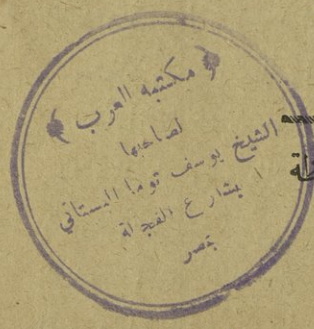 مكتبة العرب
لصاحبها
الشيخ يوسف توما البستاني
بشارع الفجالة
بمصر